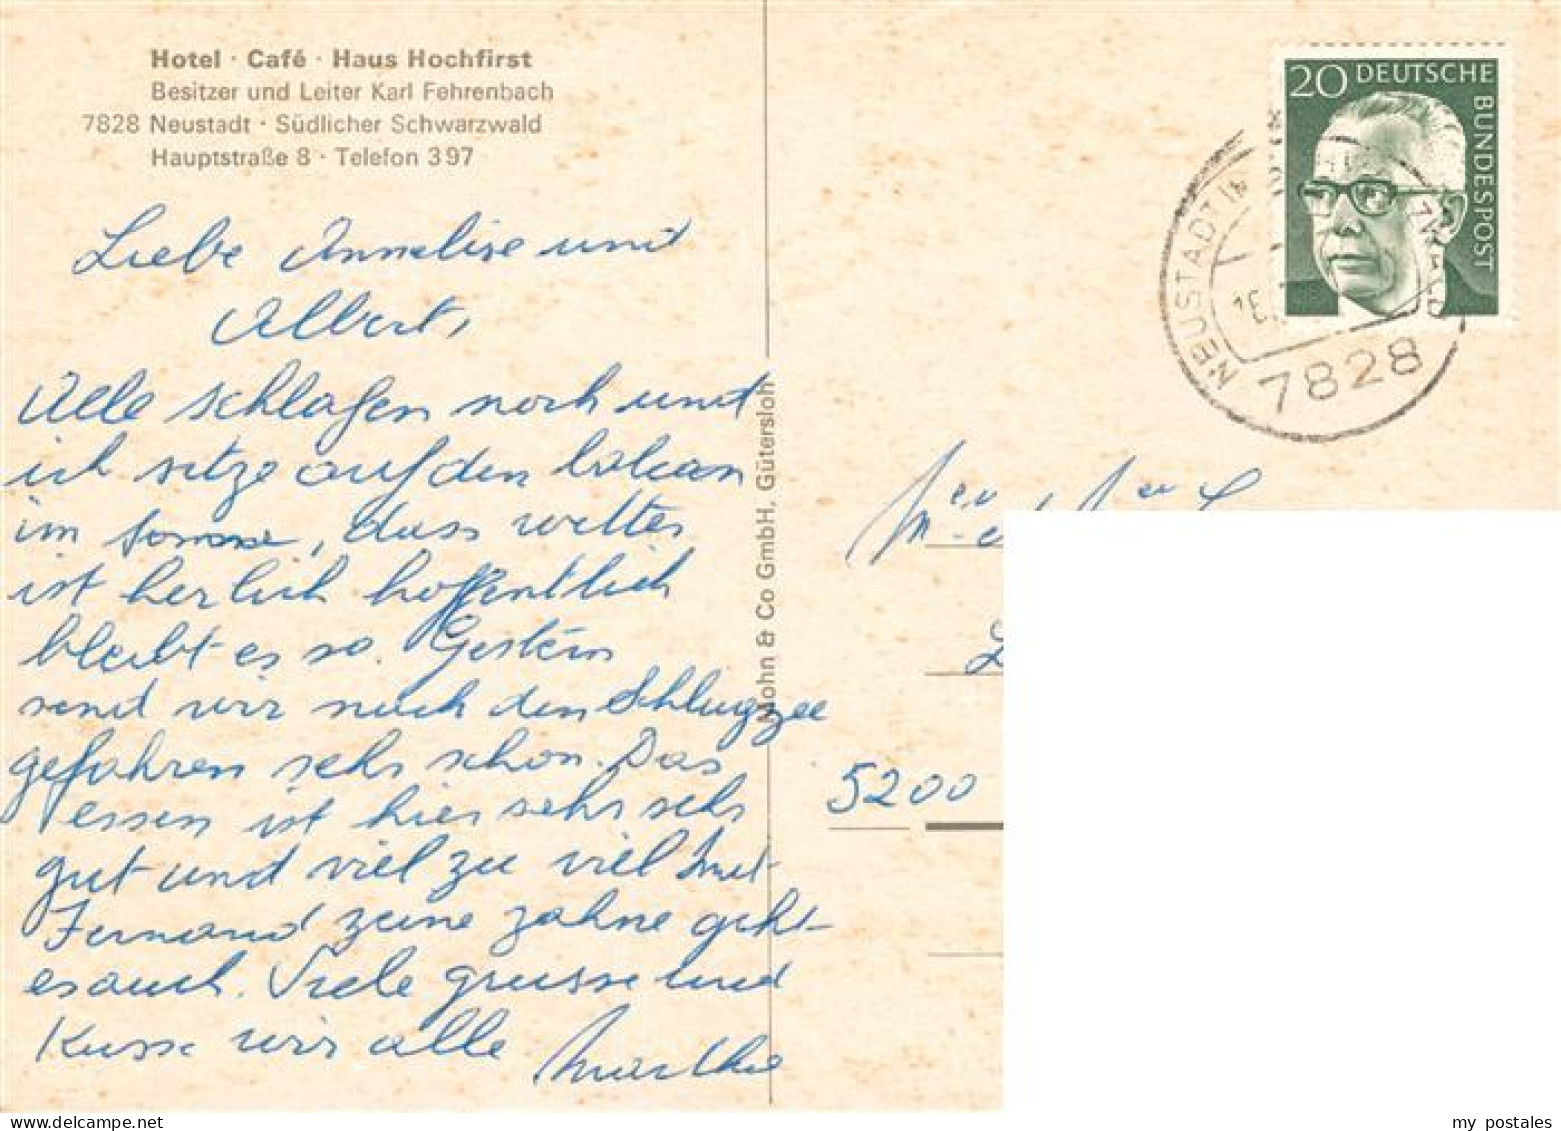 Hotel · Café · Haus Hochfirst
Besitzer und Leiter Karl Fehrenbach
7828 Neustadt · Südlicher Schwarzwald
Hauptstraße 8 · Telefon 397
Liebe Annelise und
Albert,
Alle schlafen noch und
ich sitze auf den balcan
im sonne, dass wetter
ist herlich hoffentlich
bleibt es so. Gestern
send wir nach den Schluzzee
gefahren sehr schon. Das
essen ist hier sehr sehr
gut und viel zu viel mit
Fernand zeine zahne geht
es auch. Viele grusse und
Kusse wir alle Marthe
Mohn & Co GmbH, Gütersloh
20 DEUTSCHE
BUNDESPOST
NEUSTADT IM
7828
5200
my postales